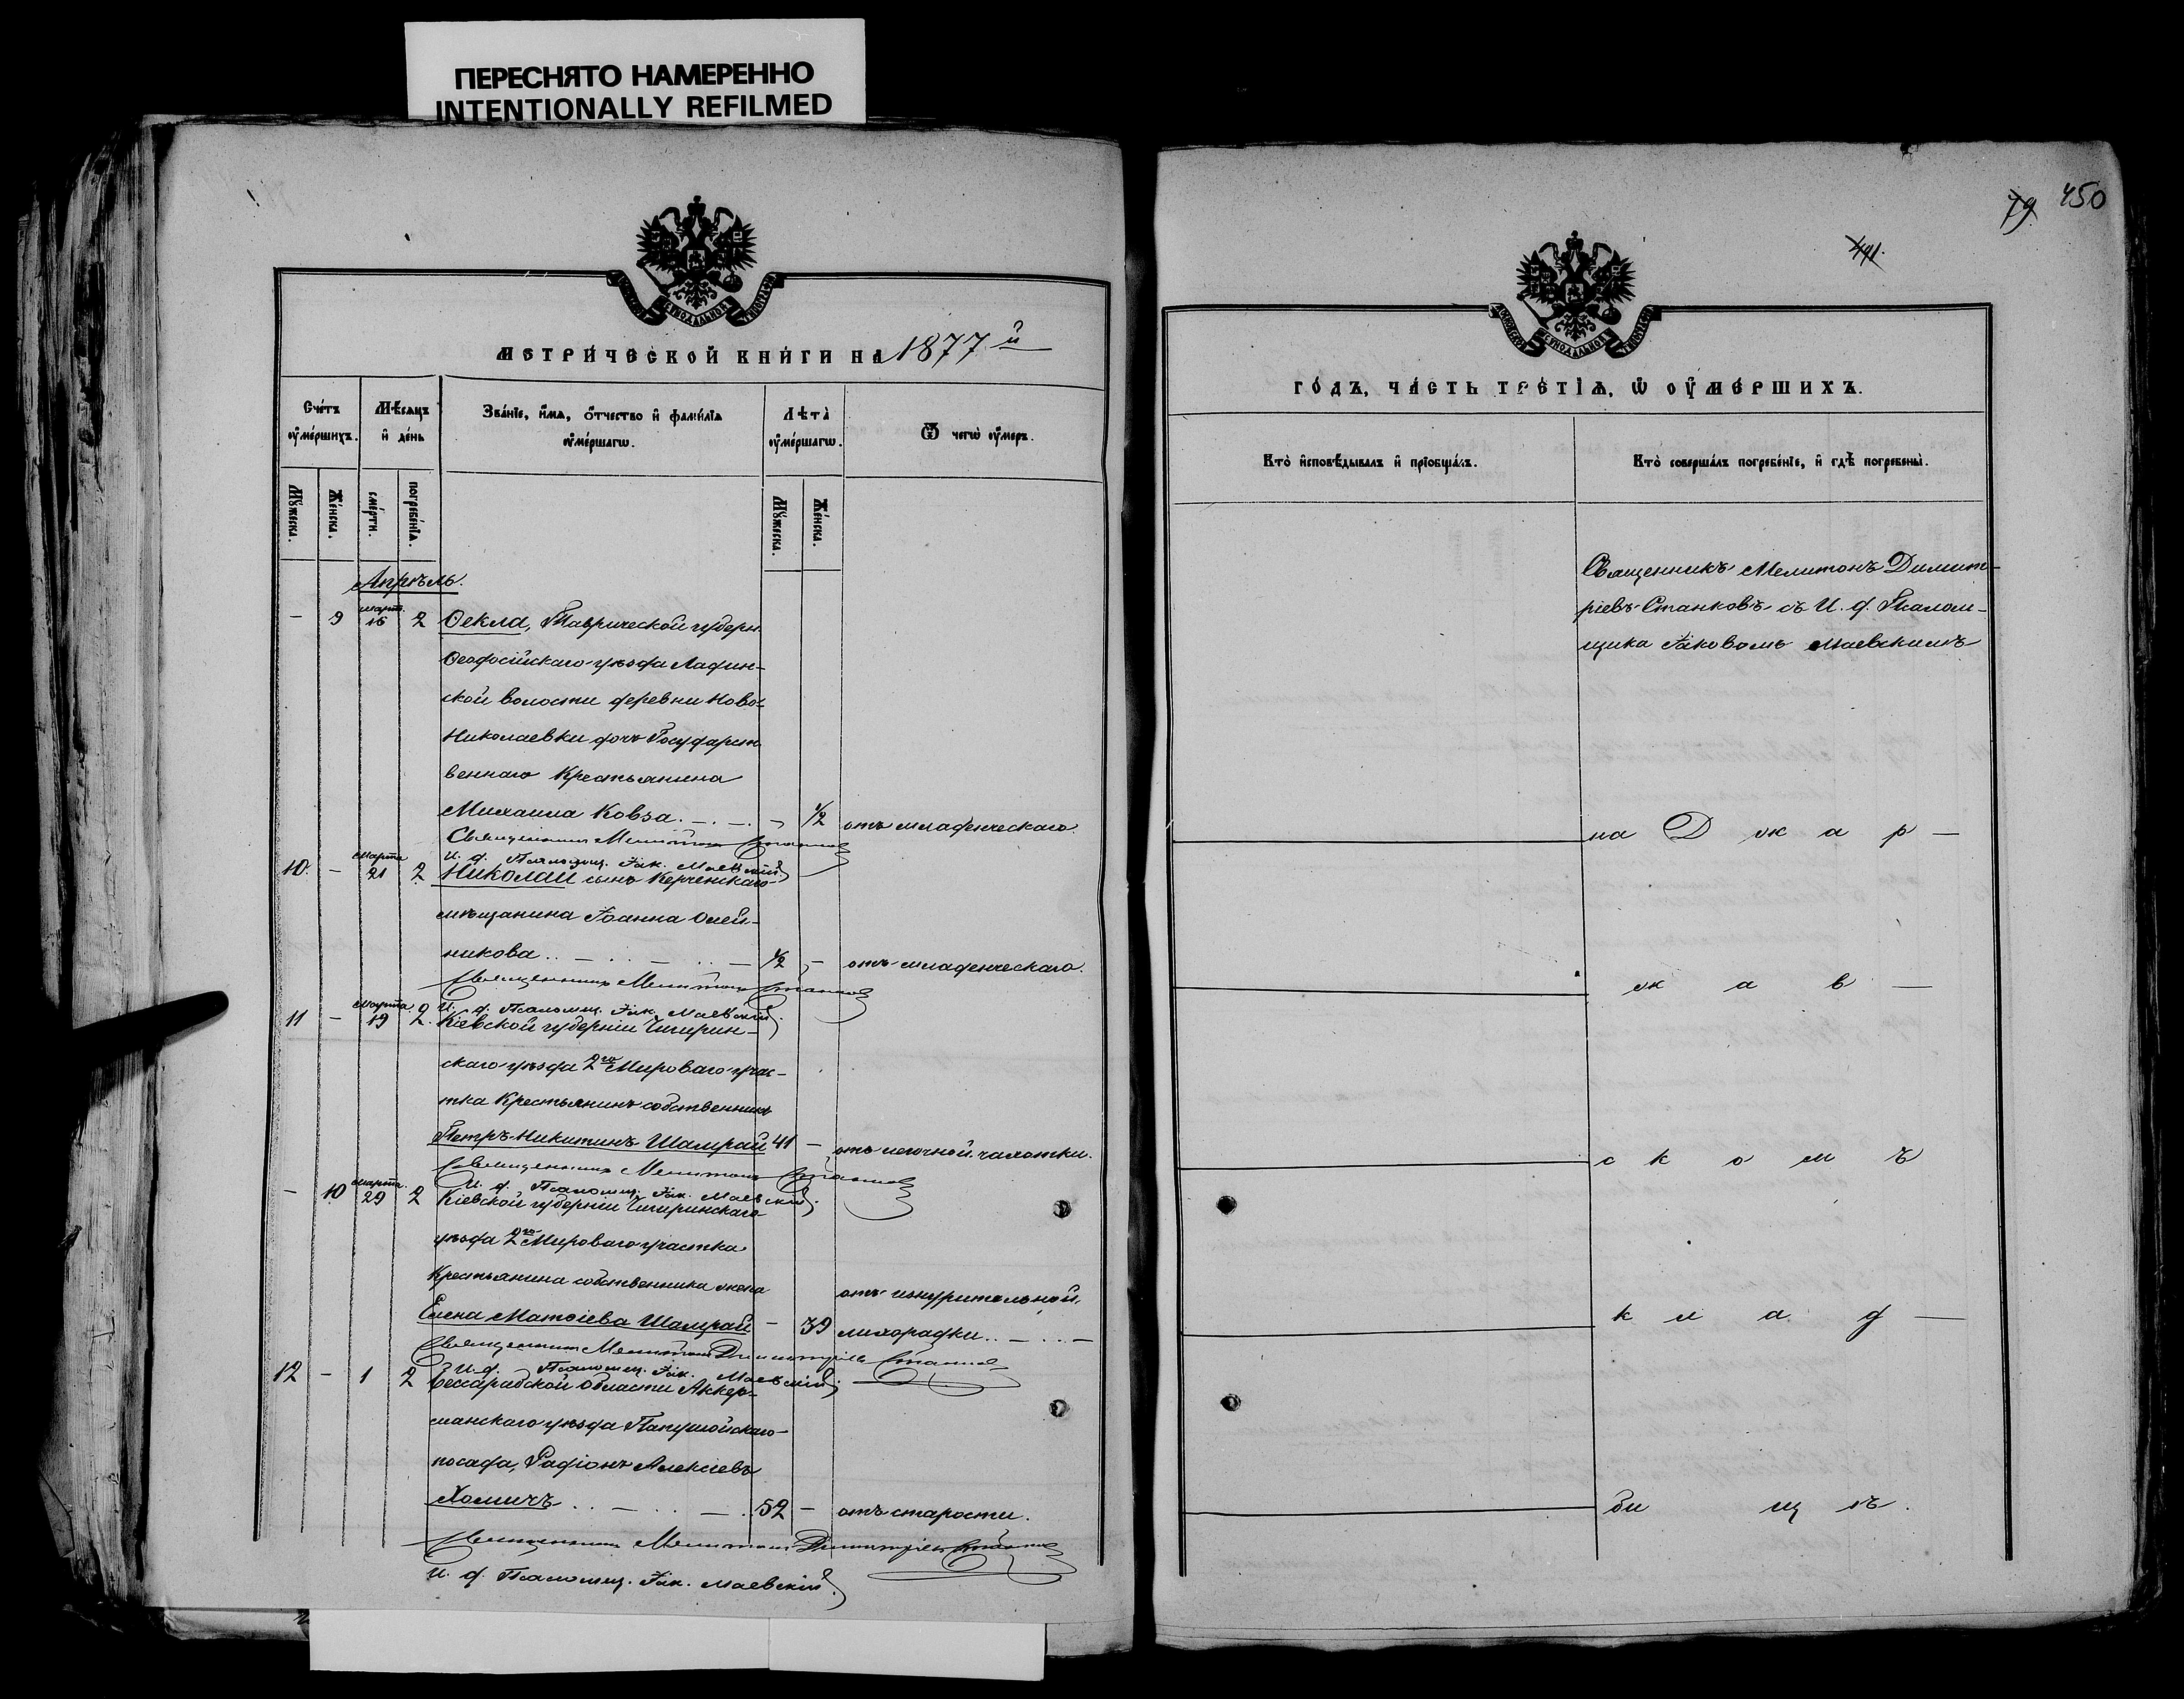 ПЕРЕСНЯТО НАМЕРЕННО
INTENTIONALLY REFILMED
79 450
491.
МЕТРИЧЕСКОЙ КНИГИ НА 1877й
Счетъ умершихъ.
Мѣсяцъ и день
Званіе, имя, отчество и фамилія умершаго.
Лѣта умершаго.
Ѿ чего умеръ.
Мужеска.
Женска.
смерти.
погребенія.
Мужеска.
Женска.
Апрѣль.
— 9 марта 16 2 Ѳекла, Таврической губерн.
Ѳеодосійскаго уѣзда Ладин-
ской волости деревни Ново-
Николаевки дочь Государст-
веннаго Крестьянина
Михаила Ковза. — 1/2 отъ младенческаго.
Священникъ Мелитонъ Станковъ
И. д. Псаломщ. Іак. Маевскій
10. — Марта 21 2 Николай сынъ Керченскаго
мѣщанина Іоанна Олей-
никова 1/2 — отъ младенческаго.
Священникъ Мелитонъ Станковъ
И. д. Псаломщ. Іак. Маевскій.
11 — Марта 19 2. Кіевской губерніи Чигирин-
скаго уѣзда 2го Мироваго учас-
тка Крестьянинъ собственникъ
Петръ Никитинъ Шамрай 41 — отъ легочной чахотки.
Священникъ Мелитонъ Станковъ
И. д. Псаломщ. Іак. Маевскій.
— 10 Марта 29 2 Кіевской губерніи Чигиринскаго
уѣзда 2го Мироваго участка
Крестьянина собственника жена
Елена Матѳіева Шамрай — 39 отъ изнурительной лихорадки.
Священникъ Мелитонъ Димитріевъ Станковъ
И. д. Псаломщ. Іак. Маевскій.
12 — 1 2 Бессарабской Области Аккер-
манскаго уѣзда Папушойскаго
посада, Радіонъ Алексіевъ
Хомичъ 52 — отъ старости.
Священникъ Мелитонъ Димитріевъ Станковъ
И. д. Псаломщ. Іак. Маевскій.
ГОДЪ, ЧАСТЬ ТРЕТІЯ, Ѿ УМЕРШИХЪ.
Кто исповѣдывалъ и пріобщалъ.
Кто совершалъ погребеніе, и гдѣ погребены.
Священникъ Мелитонъ Димит-
ріевъ Станковъ съ И. д. Псалом-
щика Іаковомъ Маевскимъ
на Д ж а р —
ж а в —
с к о м ъ
к л а д —
би щ ѣ.